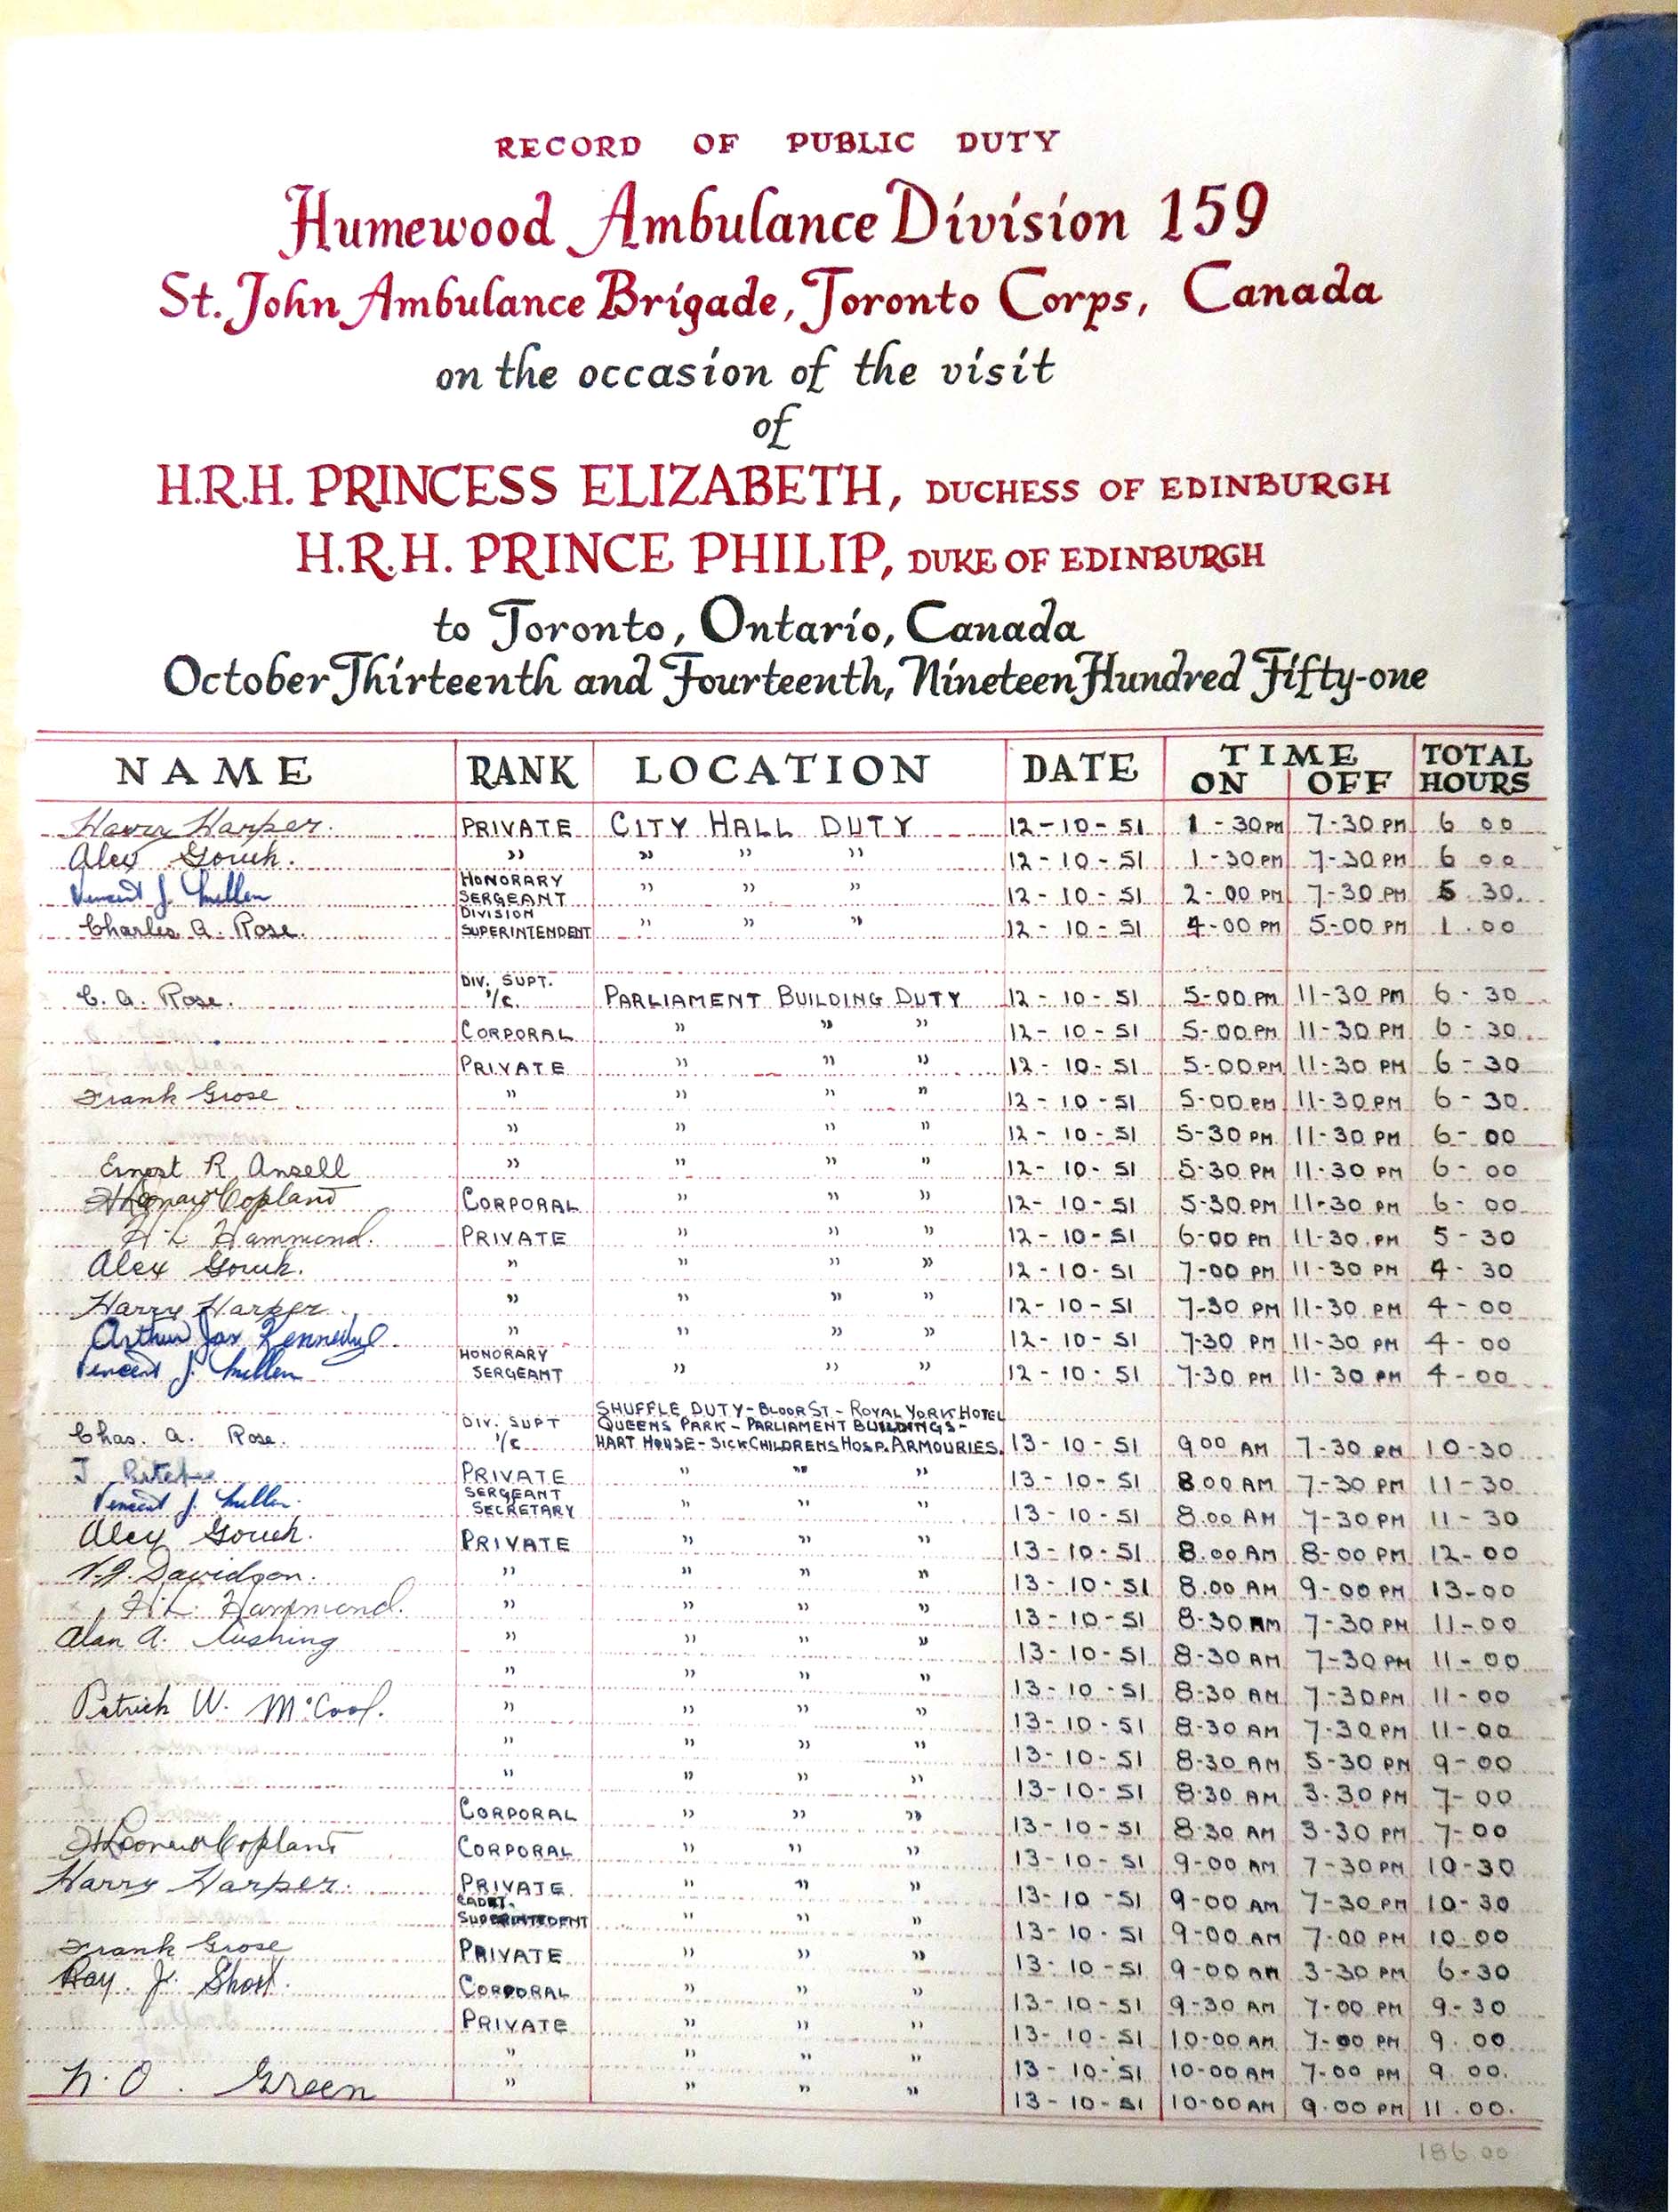 RECORD OF PUBLIC DUTY
Humewood Ambulance Division 159
St. John Ambulance Brigade, Toronto Corps, Canada
on the occasion of the visit
of
H.R.H. PRINCESS ELIZABETH, DUCHESS OF EDINBURGH
H.R.H. PRINCE PHILIP, DUKE OF EDINBURGH
to Toronto, Ontario, Canada
October Thirteenth and Fourteenth, Nineteen Hundred Fifty-one
NAME RANK LOCATION DATE TIME ON OFF TOTAL HOURS
Harry Harper. PRIVATE CITY HALL DUTY 12-10-51 1-30 PM 7-30 PM 6 00
Alex Gouk. " " " " 12-10-51 1-30 PM 7-30 PM 6 00
Vincent J. HONORARY SERGEANT " " " 12-10-51 2-00 PM 7-30 PM 5.30.
Charles A. Rose. DIVISION SUPERINTENDENT " " " 12-10-51 4-00 PM 5-00 PM 1.00
C. A. Rose. DIV. SUPT. I/C. PARLIAMENT BUILDING DUTY 12-10-51 5-00 PM 11-30 PM 6-30
CORPORAL " " " 12-10-51 5-00 PM 11-30 PM 6-30
PRIVATE " " " 12-10-51 5-00 PM 11-30 PM 6-30
Frank Grose " " " " 12-10-51 5-00 PM 11-30 PM 6-30.
" " " " 12-10-51 5-30 PM 11-30 PM 6-00
Ernest R. Ansell " " " " 12-10-51 5-30 PM 11-30 PM 6-00
Copland CORPORAL " " " 12-10-51 5-30 PM 11-30 PM 6-00
H. L. Hammond. PRIVATE " " " 12-10-51 6-00 PM 11-30 PM 5-30
Alex Gouk. " " " " 12-10-51 7-00 PM 11-30 PM 4-30
Harry Harper. " " " " 12-10-51 7-30 PM 11-30 PM 4-00
Arthur Kennedy " " " " 12-10-51 7-30 PM 11-30 PM 4-00
Vincent J. HONORARY SERGEANT " " " 12-10-51 7-30 PM 11-30 PM 4-00
SHUFFLE DUTY-BLOOR ST.-ROYAL YORK HOTEL
QUEENS PARK-PARLIAMENT BUILDINGS-
Chas. A. Rose. DIV. SUPT I/C HART HOUSE-SICK CHILDRENS HOSP. ARMOURIES. 13-10-51 9 00 AM 7-30 PM 10-30
PRIVATE " " " 13-10-51 8.00 AM 7-30 PM 11-30
Vincent J. SERGEANT SECRETARY " " " 13-10-51 8.00 AM 7-30 PM 11-30
Alex Gouk. PRIVATE " " " 13-10-51 8.00 AM 8-00 PM 12-00
Davidson. " " " " 13-10-51 8.00 AM 9-00 PM 13-00
H. L. Hammond. " " " " 13-10-51 8-30 AM 7-30 PM 11-00
Alan A. Cushing " " " " 13-10-51 8-30 AM 7-30 PM 11-00
" " " " 13-10-51 8-30 AM 7-30 PM 11-00
Patrick W. McCool. " " " " 13-10-51 8-30 AM 7-30 PM 11-00
" " " " 13-10-51 8-30 AM 5-30 PM 9-00
" " " " 13-10-51 8-30 AM 3-30 PM 7-00
CORPORAL " " " 13-10-51 8-30 AM 3-30 PM 7-00
Copland CORPORAL " " " 13-10-51 9-00 AM 7-30 PM 10-30
Harry Harper. PRIVATE " " " 13-10-51 9-00 AM 7-30 PM 10-30
CADET. SUPERINTEDENT " " " 13-10-51 9-00 AM 7-00 PM 10.00
Frank Grose PRIVATE " " " 13-10-51 9-00 AM 3-30 PM 6-30
Ray. J. Short. CORPORAL " " " 13-10-51 9-30 AM 7-00 PM 9-30
PRIVATE " " " 13-10-51 10-00 AM 7-00 PM 9.00
" " " " 13-10-51 10-00 AM 7-00 PM 9.00.
N. O. Green " " " " 13-10-51 10-00 AM 9.00 PM 11.00.
186.00